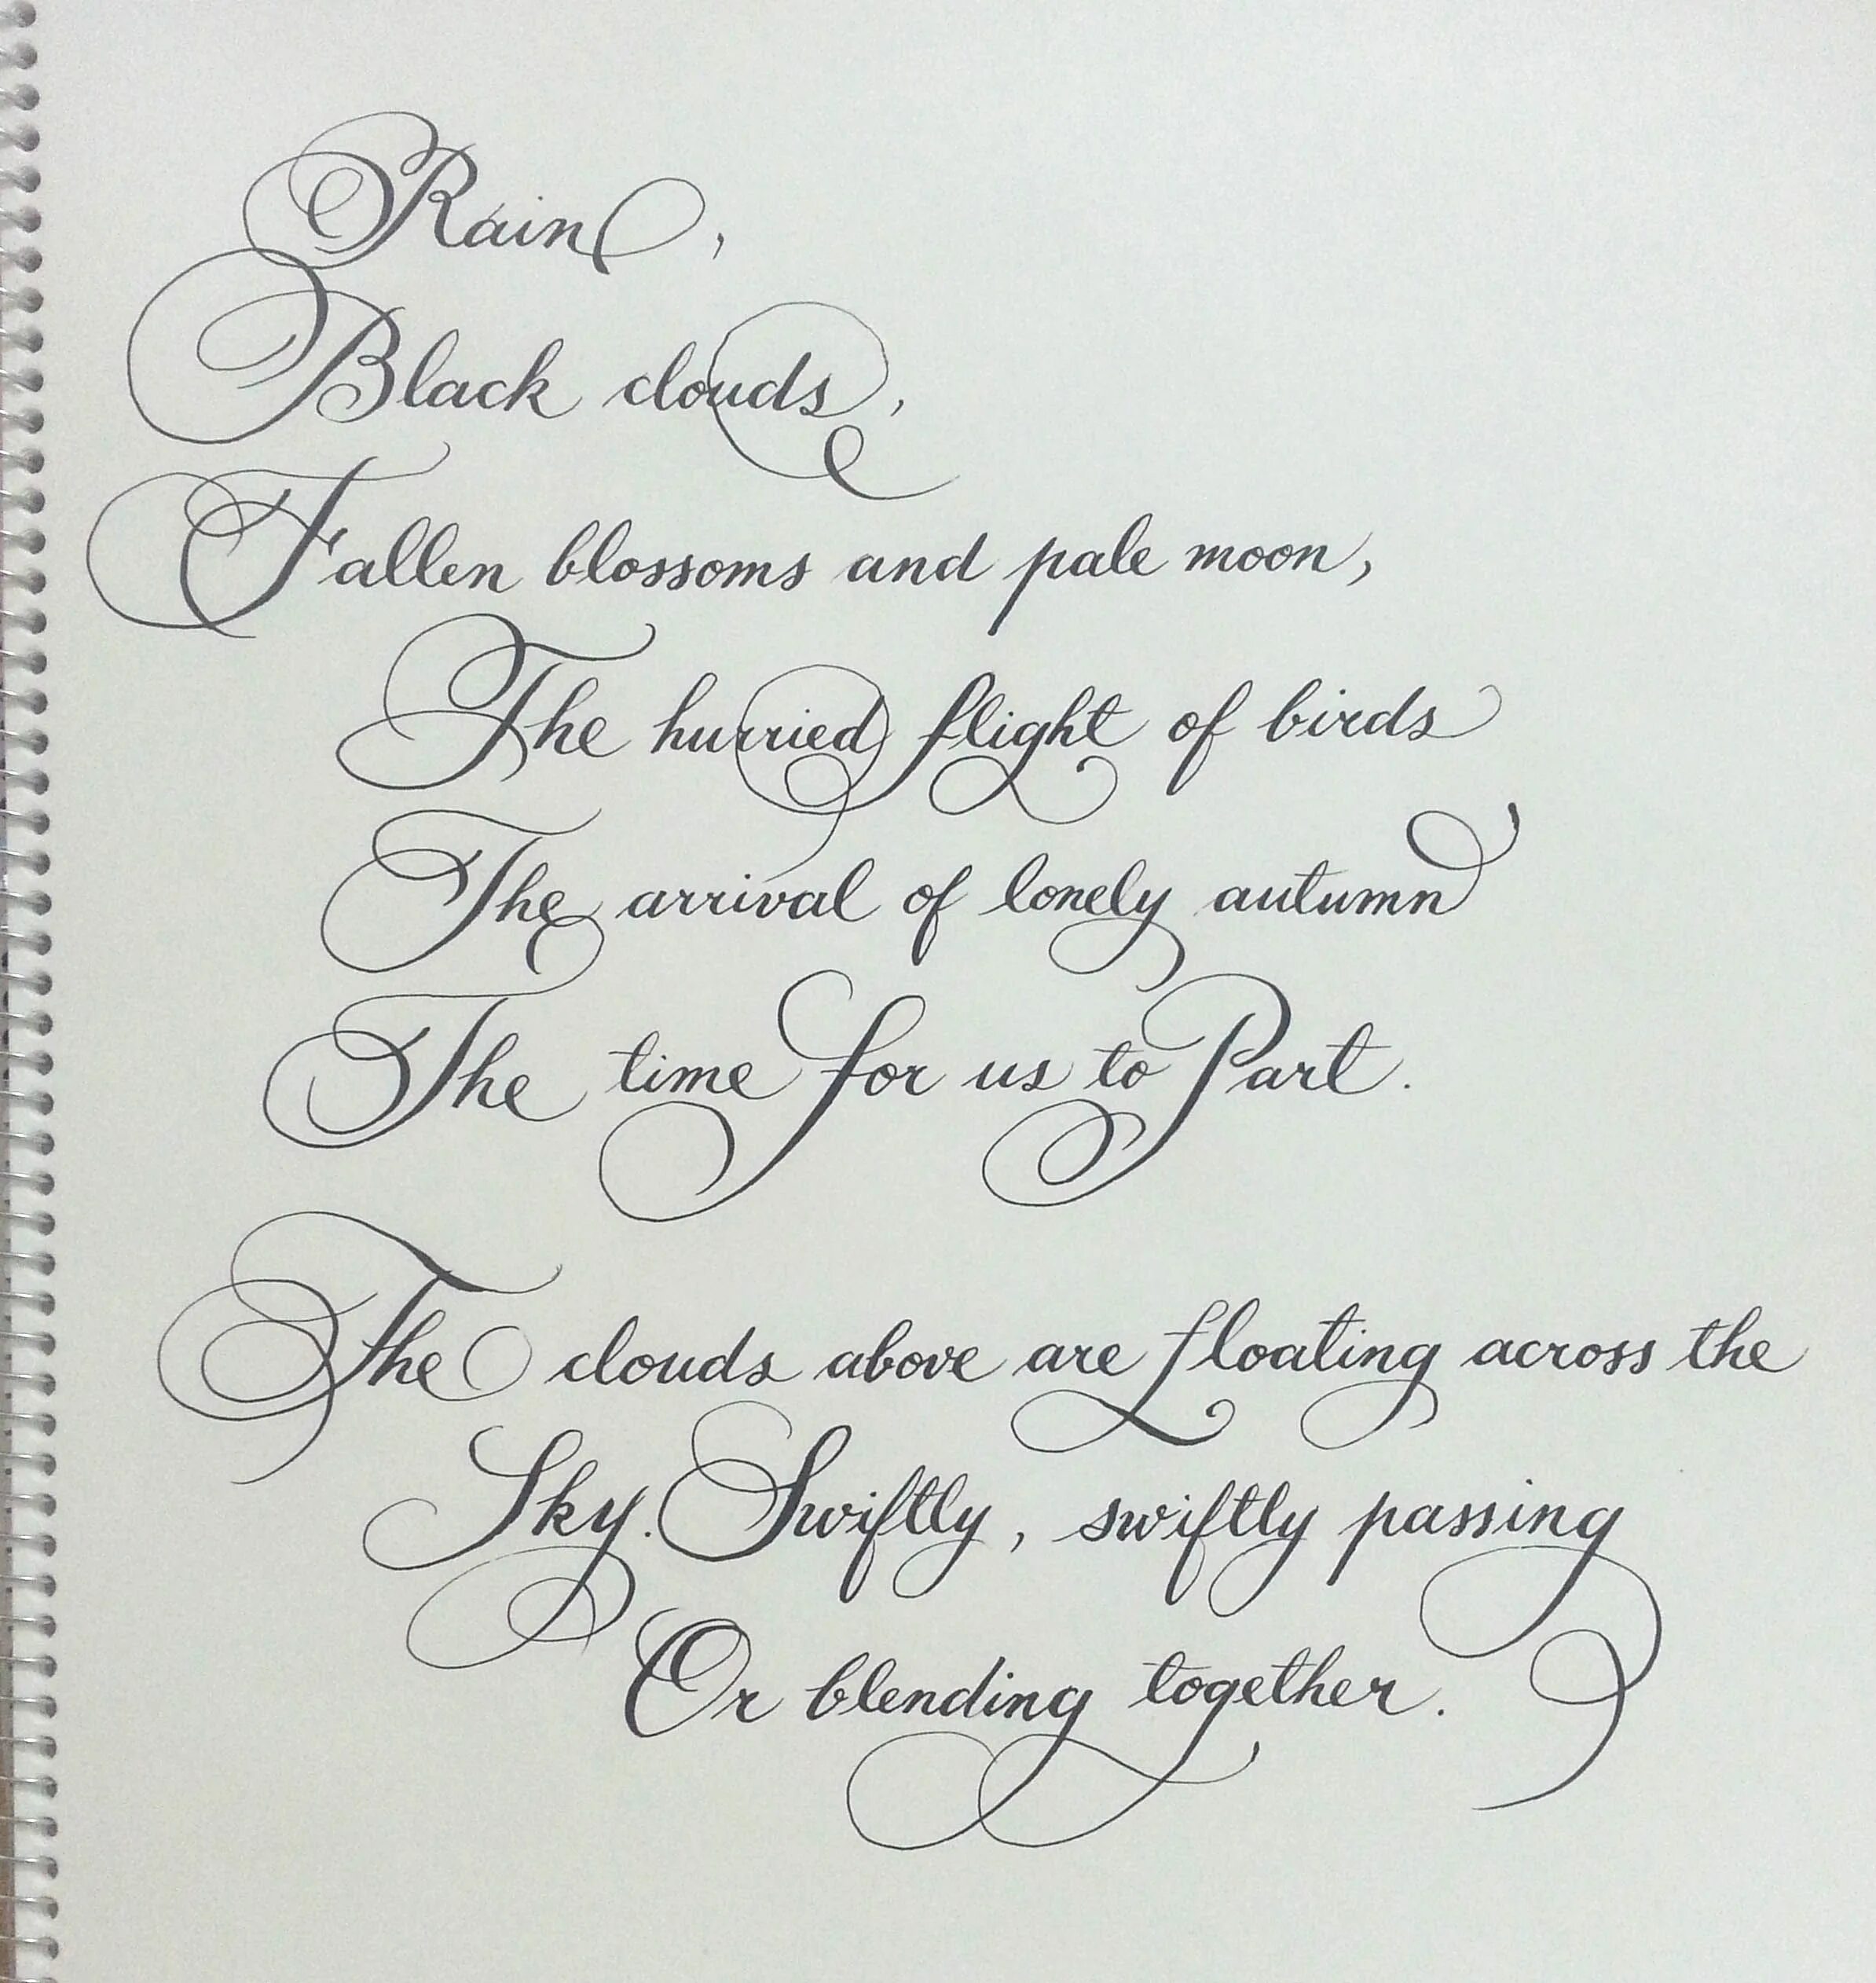 Rain,
Black clouds,
Fallen blossoms and pale moon,
The hurried flight of birds
The arrival of lonely autumn
The time for us to Part.
The clouds above are floating across the
Sky. Swiftly, swiftly passing
Or blending together.